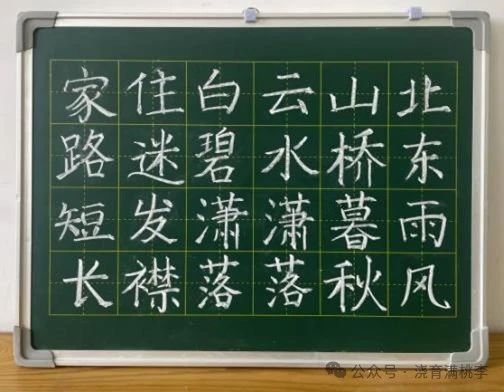 家住白云山北
路迷碧水桥东
短发潇潇暮雨
长襟落落秋风
公众号 · 浇育满桃李